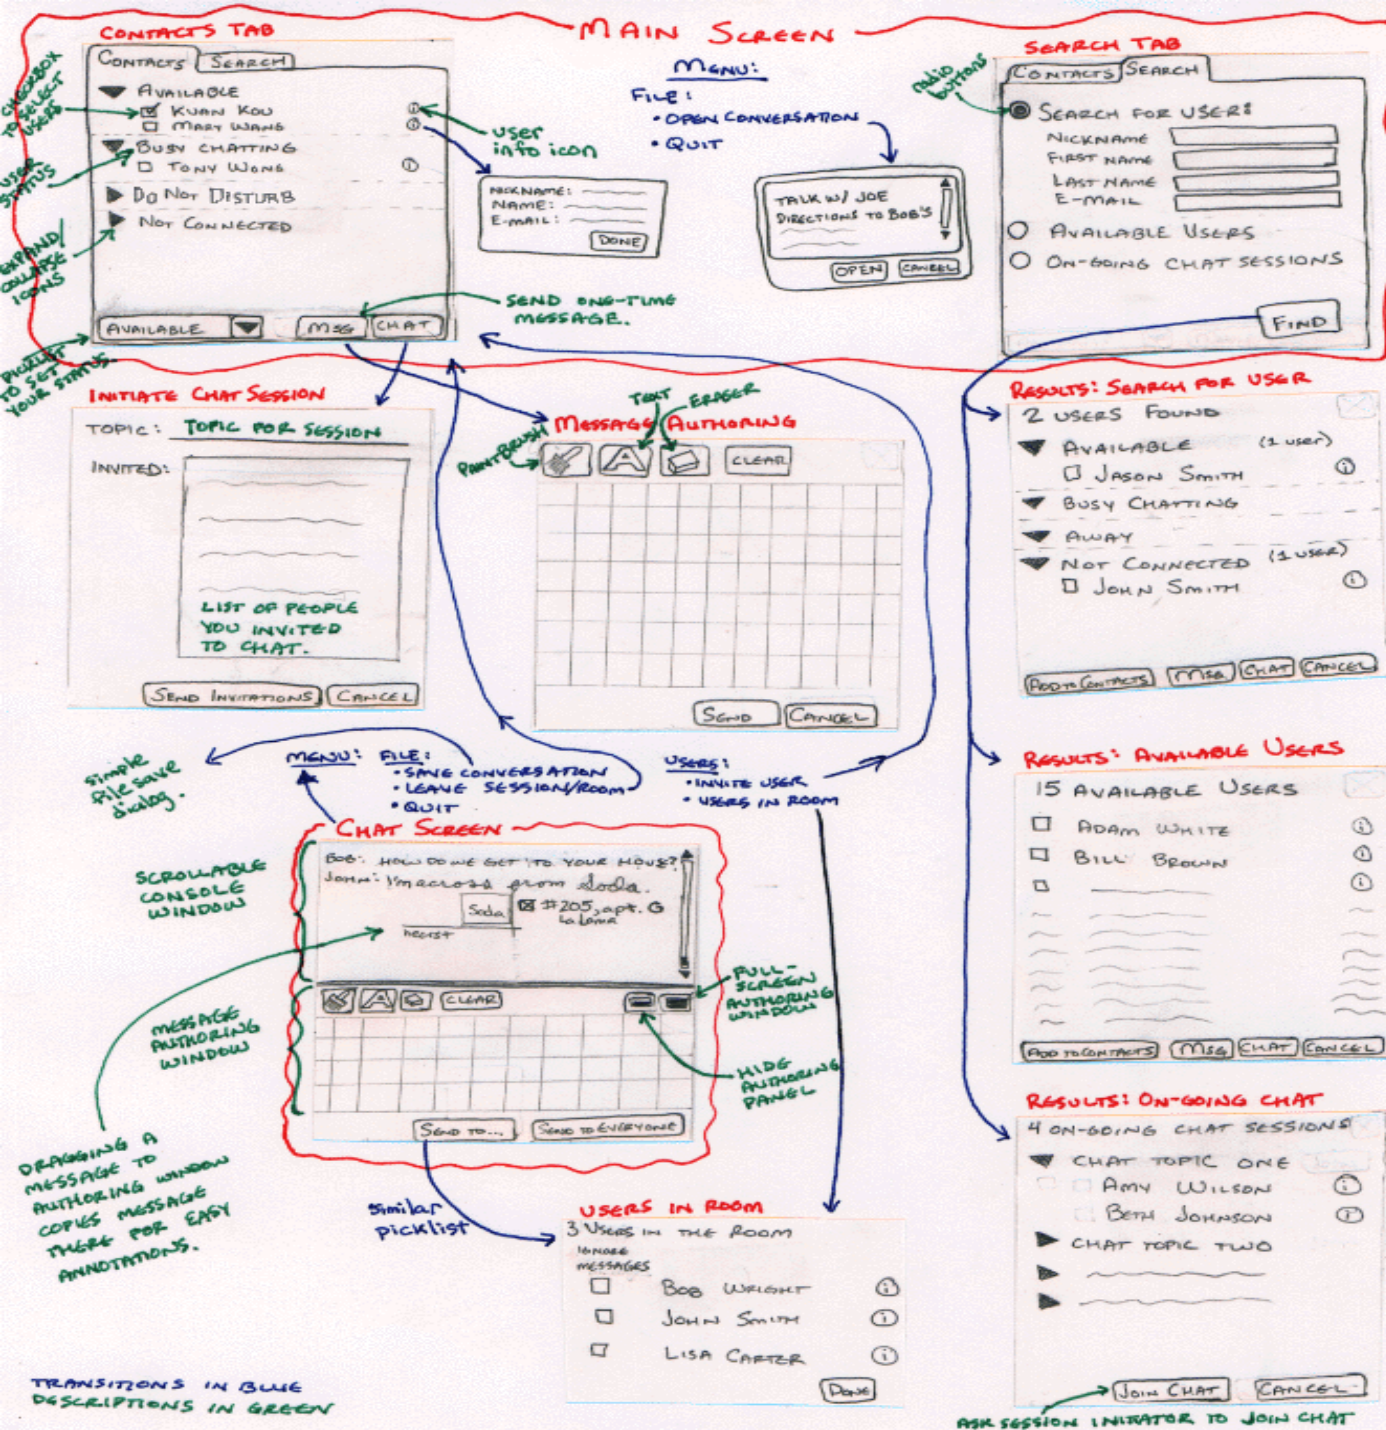 MAIN SCREEN
CONTACTS TAB
CONTACTS SEARCH
AVAILABLE
KUAN KOU
MARY WANG
BUSY CHATTING
TONY WONG
DO NOT DISTURB
NOT CONNECTED
AVAILABLE MSG CHAT
CHECKBOX
TO SELECT
USERS
USER
STATUS
EXPAND/
COLLAPSE
ICONS
PICKLIST
TO SET
YOUR STATUS.
user
info icon
SEND ONE-TIME
MESSAGE.
MENU:
FILE:
• OPEN CONVERSATION
• QUIT
NICKNAME:
NAME:
E-MAIL:
DONE
TALK W/ JOE
DIRECTIONS TO BOB'S
OPEN CANCEL
SEARCH TAB
radio
buttons
CONTACTS SEARCH
SEARCH FOR USER:
NICKNAME
FIRST NAME
LAST NAME
E-MAIL
AVAILABLE USERS
ON-GOING CHAT SESSIONS
FIND
INITIATE CHAT SESSION
TOPIC: TOPIC FOR SESSION
INVITED:
LIST OF PEOPLE
YOU INVITED
TO CHAT.
SEND INVITATIONS CANCEL
MESSAGE AUTHORING
PAINTBRUSH
TEXT
ERASER
A CLEAR
SEND CANCEL
RESULTS: SEARCH FOR USER
2 USERS FOUND
AVAILABLE (1 user)
JASON SMITH
BUSY CHATTING
AWAY
NOT CONNECTED (1 USER)
JOHN SMITH
ADD TO CONTACTS MSG CHAT CANCEL
simple
file save
dialog.
MENU: FILE:
• SAVE CONVERSATION
• LEAVE SESSION/ROOM
• QUIT
USERS:
• INVITE USER
• USERS IN ROOM
RESULTS: AVAILABLE USERS
15 AVAILABLE USERS
ADAM WHITE
BILL BROWN
ADD TO CONTACTS MSG CHAT CANCEL
CHAT SCREEN
BOB: HOW DO WE GET TO YOUR HOUSE?
JOHN: I'm across from Soda.
Soda #205, apt. G
La Loma
hearst
A CLEAR
SEND TO... SEND TO EVERYONE
SCROLLABLE
CONSOLE
WINDOW
MESSAGE
AUTHORING
WINDOW
DRAGGING A
MESSAGE TO
AUTHORING WINDOW
COPIES MESSAGE
THERE FOR EASY
ANNOTATIONS.
FULL-
SCREEN
AUTHORING
WINDOW
HIDE
AUTHORING
PANEL
similar
picklist
USERS IN ROOM
3 USERS IN THE ROOM
IGNORE
MESSAGES
BOB WRIGHT
JOHN SMITH
LISA CARTER
DONE
RESULTS: ON-GOING CHAT
4 ON-GOING CHAT SESSIONS
CHAT TOPIC ONE
AMY WILSON
BETH JOHNSON
CHAT TOPIC TWO
JOIN CHAT CANCEL
ASK SESSION INITIATOR TO JOIN CHAT
TRANSITIONS IN BLUE
DESCRIPTIONS IN GREEN